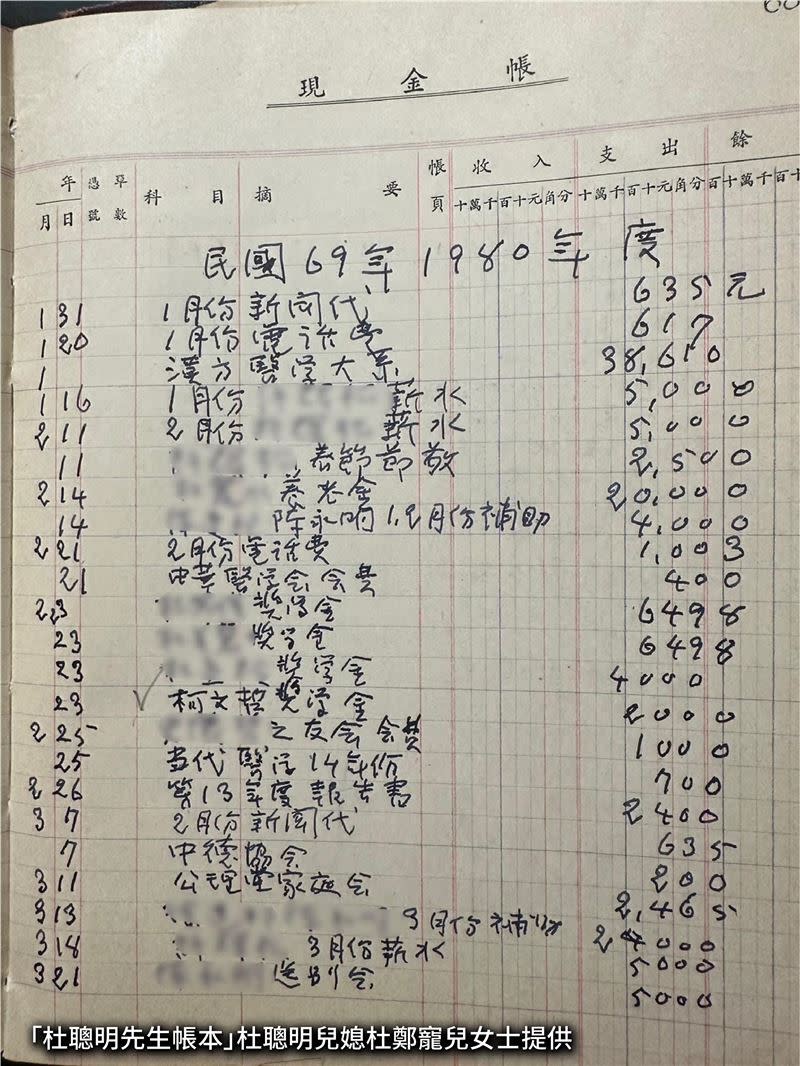 現金帳
年 月 日 憑單號數 科目 摘要 帳頁 收入 支出 餘
十萬千百十元角分 十萬千百十元角分 百十萬千百十
民國69年1980年度
1 31 1月份新聞代 635元
1 20 1月份電話費 617
1 漢方醫学大系 38,610
1 16 1月份 薪水 5,000
2 11 2月份 薪水 5,000
11 春節節敬 2,500
2 14 養老金 20,000
14 陳永明1,2月份補助 4,000
2 21 2月份電话費 1,003
21 中華醫学会会費 400
2 23 獎学金 6498
23 獎学金 6498
23 獎学金 4000
23 柯文哲獎学金 2000
2 25 之友会会費 1000
25 当代醫学14年份 700
2 26 第13年度報告書 2400
3 7 2月份新聞代 635
7 中德協会 200
3 11 公理堂家庭会 2,465
3 13 3月份補助 24000
3 18 3月份薪水 5000
3 21 送别会 5000
「杜聰明先生帳本」杜聰明兒媳杜鄭寵兒女士提供